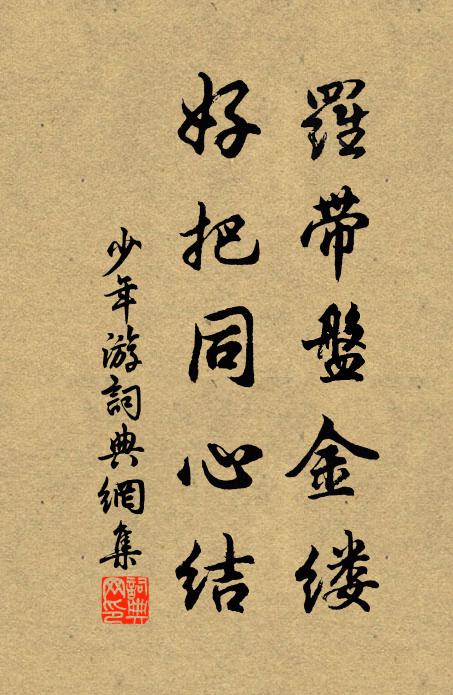 羅帶盤金缕
好把同心结
少年游詞典網集
詞典
网印